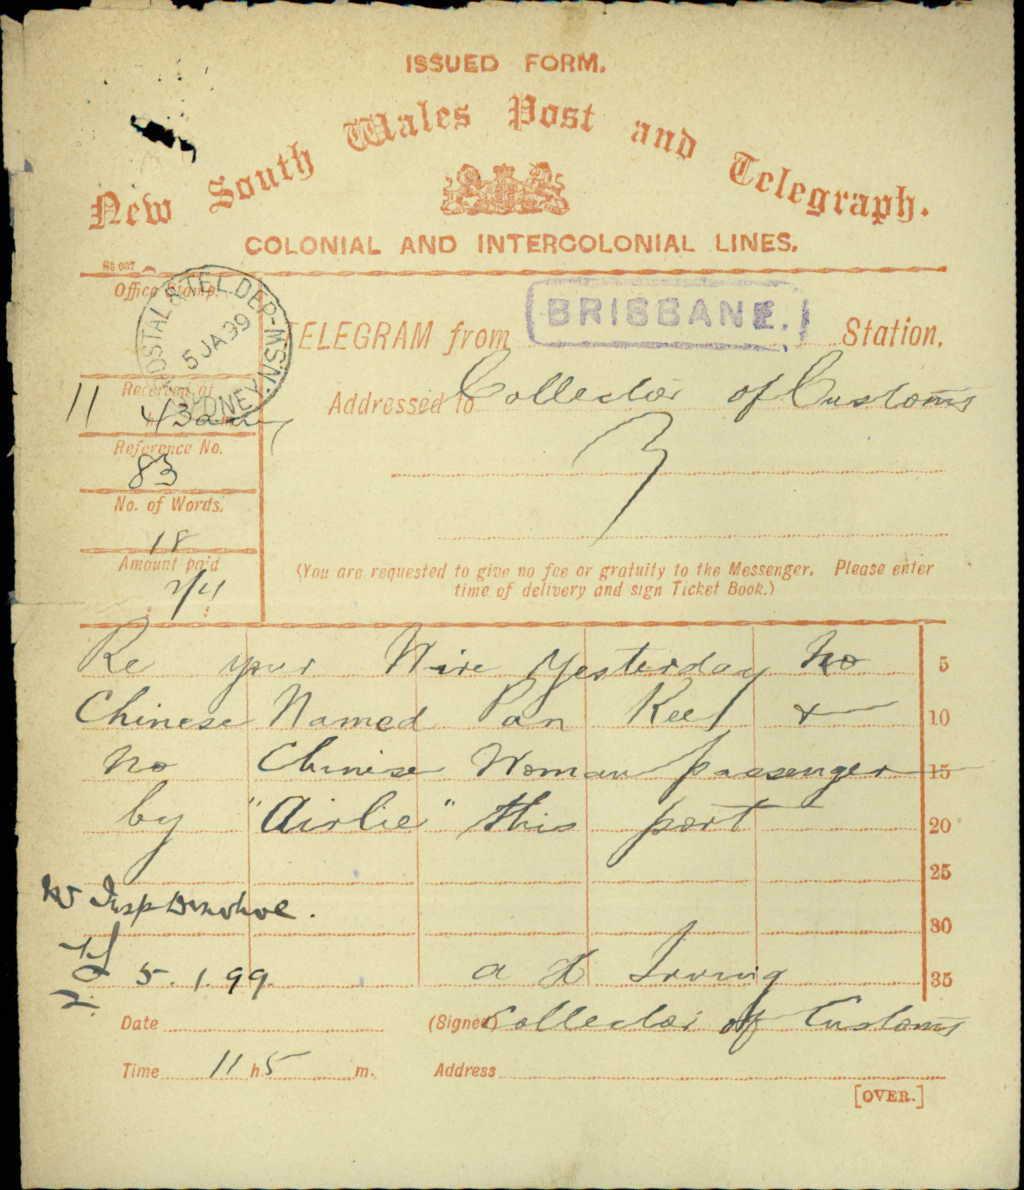 ISSUED FORM.
New South Wales Post and Telegraph.
COLONIAL AND INTERCOLONIAL LINES.
Office Stamp.
POSTAL & TEL. DEP-MSN. SYDNEY
5 JA 99
TELEGRAM from BRISBANE. Station.
Received at
11 43 am
Addressed to Collector of Customs
Reference No.
83
No. of Words.
18
Amount paid
2/4
(You are requested to give no fee or gratuity to the Messenger. Please enter
time of delivery and sign Ticket Book.)
Re your Wire Yesterday No 5
Chinese Named Pan Kee & 10
No Chinese Woman passenger 15
by "Airlie" this port 20
25
Insp Donohoe.
30
5.1.99. A H Irving 35
Date (Signed) Collector of Customs
Time 11 h. 5 m. Address
[OVER.]